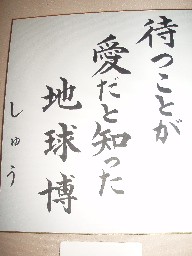 待つことが
愛だと知った
地球博
しゅう